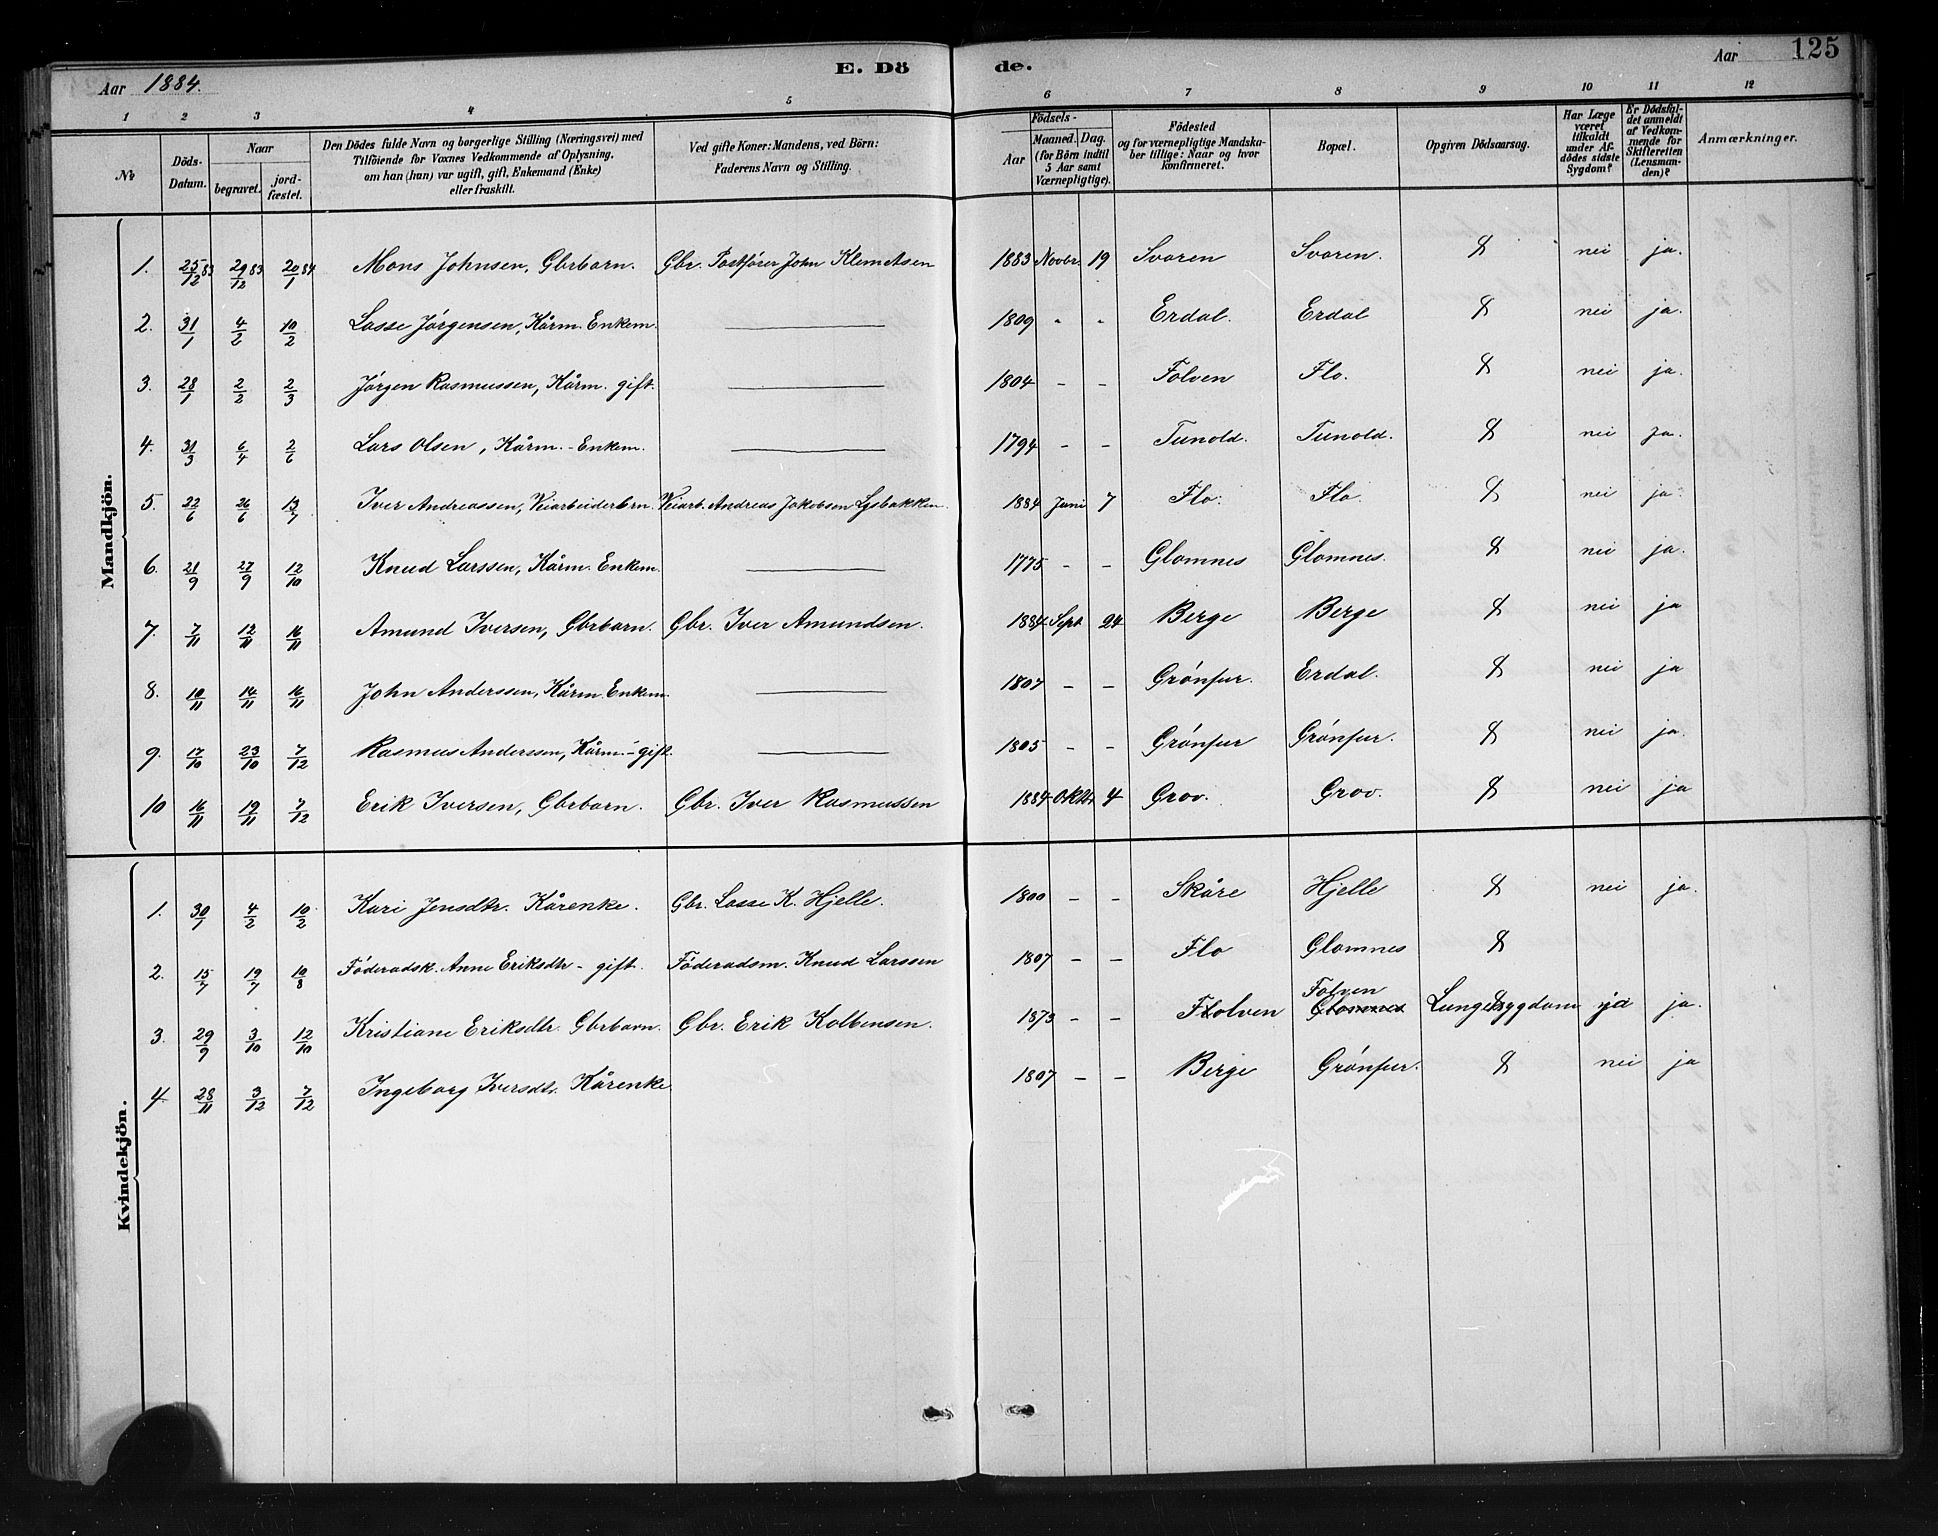 Aar 1884.
E. Dö de.
Aar 125
1 2 3 4 5 6 7 8 9 10 11 12
№
Döds-Datum.
Naar
begravet.
jord-fæstet.
Den Dödes fulde Navn og borgerlige Stilling (Næringsvei) med
Tilföiende for Voxnes Vedkommende af Oplysning,
om han (hun) var ugift, gift, Enkemand (Enke)
eller fraskilt.
Ved gifte Koner: Mandens, ved Börn:
Faderens Navn og Stilling.
Födsels-
Aar
Maaned. Dag.
(for Börn indtil
5 Aar samt
Værnepligtige).
Födested
og for værnepligtige Mandska-
ber tillige: Naar og hvor
konfirmeret.
Bopæl.
Opgiven Dödsaarsag.
Har Læge
været
tilkaldt
under Af-
dödes sidste
Sygdom?
Er Dödsfal-
det anmeldt
af Vedkom-
mende for
Skifteretten
(Lensman-
den)?
Anmærkninger.
Mandkjön.
1. 25/12 83 29/12 83 20/1 84 Mons Johnsen, Gbrbarn. Gbr. Postfører John Klem Aasen 1883 Novbr. 19 Svoren Svoren. nei ja.
2. 31/1 4/2 10/2 Lasse Jørgensen, Kårm. Enkem. 1809 - - Erdal. Erdal nei ja.
3. 28/1 2/2 2/3 Jørgen Rasmussen, Kårm. gift. 1804 - - Folven Flo. nei ja.
4. 31/3 6/4 2/6 Lars Olsen, Kårm. - Enkem. 1794 - - Tunold. Tunold. nei ja.
5. 22/6 26/6 13/7 Iver Andreassen, Veiarbeiderbrn. Veiarb. Andreas Jakobsen Lysbakken. 1884 Juni 7 Flo. Flo. nei ja.
6. 21/9 27/9 12/10 Knud Larssen, Kårm. Enkem. 1775 - - Glomnes Glomnes. nei ja.
7. 7/11 12/11 16/11 Amund Iversen, Gbrbarn. Gbr. Iver Amundsen. 1884 Sept. 24 Berge Berge nei ja
8. 10/11 14/11 16/11 John Anderssen, Kårm. Enkem. 1807 - - Grønfur. Erdal. nei ja
9. 17/10 23/10 7/12 Rasmus Anderssen, Kårm. - gift. 1805 - - Grønfur Grønfur. nei ja.
10 16/11 19/11 7/12 Erik Iversen, Gbrbarn. Gbr. Iver Rasmussen 1884 Oktbr. 4 Grov. Grov. nei ja
Kvindekjön.
1. 30/1 4/2 10/2 Kari Jensdtr. Kårenke. Gbr. Lasse K. Hjelle. 1800 - - Skåre Hjelle nei ja.
2. 15/7 19/7 10/8 Föderadsk. Anne Eriksdtr - gift. Föderadsm. Knud Larssen 1807 - - Flo Glomnes
3. 29/9 3/10 12/10 Kristiane Eriksdtr. Gbrbarn. Gbr. Erik Kolbensen. 1873 - - Folven Folven Glomnes Lungesygdom ja ja.
4. 28/11 3/12 7/12 Ingeborg Iversdtr. Kårenke 1807 - - Berge Grønfur. nei ja